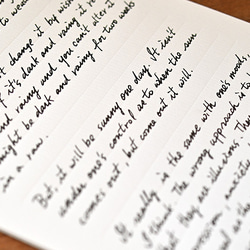 to wee
't change it by wish
f it's dark and rainy it r
and rainy and you can't alter it
might be dark and rainy for two weeks
in a row.
But it will be sunny one day. It isn't
under one's control as to when the sun
comes out, but come out it will.
It really is the same with one's moods,
I think. The wrong approach is to
that they are illusions. They
anxiet